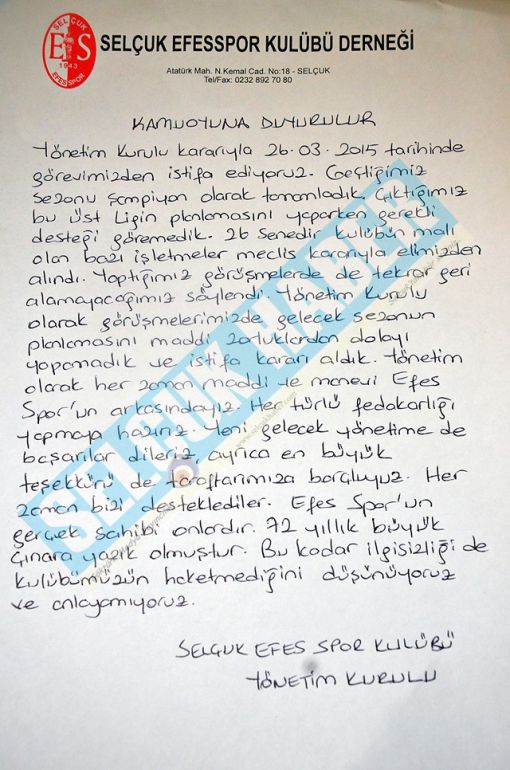 SELÇUK
EfS
1943
EFESSPOR
SELÇUK EFESSPOR KULÜBÜ DERNEĞİ
Atatürk Mah. N.Kemal Cad. No:18 - SELÇUK
Tel/Fax: 0232 892 70 80
KAMUOYUNA DUYURULUR
Yönetim Kurulu kararıyla 26.03.2015 tarihinde
görevimizden istifa ediyoruz. Geçtiğimiz
sezonu şampiyon olarak tamamladık. Çıktığımız
bu üst Ligin planlamasını yaparken gerekli
desteği göremedik. 26 senedir kulübün malı
olan bazı işletmeler meclis kararıyla elimizden
alındı. Yaptığımız görüşmelerde de tekrar geri
alamayacağımız söylendi. Yönetim Kurulu
olarak görüşmelerimizde gelecek sezonun
planlamasını maddi zorluklardan dolayı
yapamadık ve istifa kararı aldık. Yönetim
olarak her zaman maddi ve manevi Efes
Spor'un arkasındayız. Her türlü fedakarlığı
yapmaya hazırız. Yeni gelecek yönetime de
başarılar dileriz, ayrıca en büyük
teşekkürü de taraftarımıza borçluyuz. Her
zaman bizi desteklediler. Efes Spor'un
gerçek sahibi onlardır. 72 yıllık büyük
çınara yazık olmuştur. Bu kadar ilgisizliği de
kulübümüzün haketmediğini düşünüyoruz
ve anlayamıyoruz.
SELÇUK EFES SPOR KULÜBÜ
YÖNETİM KURULU
SELÇUK HABER